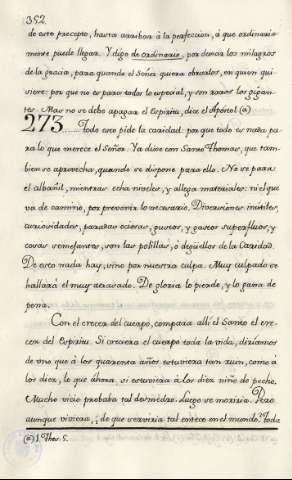 352
de este precepto, hasta arribar à la perfeccion, à que ordinaria
mente puede llegar. Y digo de ordinario, por dexar los milagros
de la gracia, para quando el Señor quiera obrarlos, en quien qui
siere: por que no es para todos lo especial, y son raros los gigan-
tes. Mas no se debe apagar el Espiritu, dice el Apostol (a)
273 Todo esto pide la caridad: por que todo es nada pa
ra lo que merece el Señor. Ya dixe con Santo Thomas, que tam
bien se aprovecha, quando se dispone para ello. No se para
el albañil, mientras echa niveles, y allega materiales: ni el que
va de camino, por prevenir lo necesario. Discusiones inutiles,
curiosidades, parar ociosas, gustos, y gastos superfluos, y
cosas semejantes, son las polillas, ò degüellos de la Caridad.
De esto nada hay, sino por nuestra culpa. Muy culpado se
hallará el muy atrasado. De gloria lo pierde, y lo gaina de
pena.
Con el crecer del cuerpo, compara allí el Santo el cre
cer del Espiritu. Si creciera el cuerpo toda la vida, diriamos
de uno que à los quarenta años estuviera tan ruin, como à
los diez, lo que ahora, si estuviera à los diez niño de pecho.
Mucho vicio probaba tal desmedro. Luego se moriria. Pero
aunque viviera, ¿de que serviria tal ente en el mundo? Toda
(a) 1. Thes. 5.